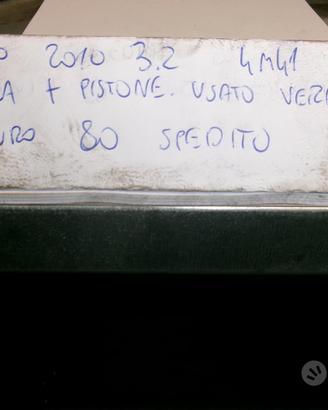 O 2010 3.2 4M41
A + PISTONE. USATO VER
URO 80 SPEDITO